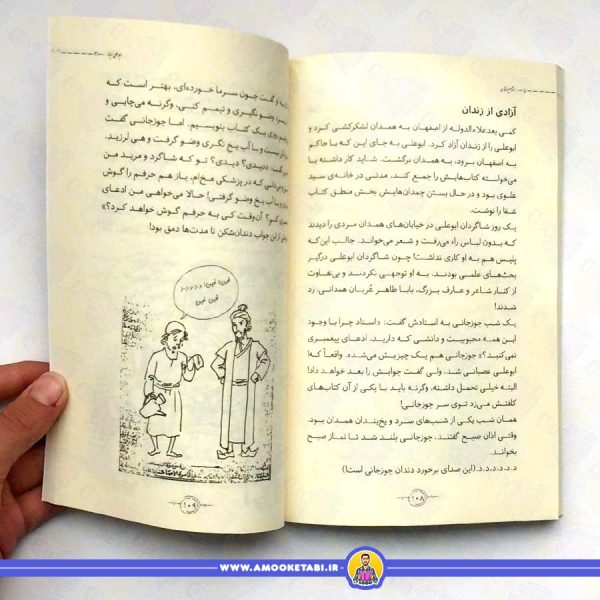 آزادی از زندان
کمی بعد علاءالدوله از اصفهان به همدان لشکرکشی کرد و
بوعلی را از زندان آزاد کرد. ابوعلی به جای این که با حاکم
به اصفهان برود، به همدان برگشت. شاید کار داشته یا
می‌خواسته کتاب‌هایش را جمع کند. مدتی در خانه‌ی سید
علوی بود و در حال بستن چمدان‌هایش بخش منطق کتاب
شفا را نوشت.
یک روز شاگردان ابوعلی در خیابان‌های همدان مردی را دیدند
که بدون لباس راه می‌رفت و شعر می‌خواند. جالب این‌که
پلیس هم به او کاری نداشت! چون شاگردان ابوعلی درگیر
بحث‌های علمی بودند، به او توجهی نکردند و بی‌تفاوت
از کنار شاعر و عارف بزرگ، بابا طاهر عُریان همدانی، رد
شدند!
یک شب جوزجانی به استادش گفت: «استاد چرا با وجود
این همه محبوبیت و دانشی که دارید، ادعای پیغمبری
نمی‌کنید؟» جوزجانی هم یک چیزیش می‌شده. واقعاً که
بوعلی عصبانی شد، ولی گفت جوابش را بعد خواهد داد!
البته خیلی تحمل داشته، وگرنه باید با یکی از آن کتاب‌های
کلفتش می‌زد توی سر جوزجانی!
همان شب یکی از شب‌های سرد و یخ‌بندان همدان بود.
وقتی اذان صبح گفتند، جوزجانی بلند شد تا نماز صبح
بخواند.
د.د.د.د.د.د.(این صدای برخورد دندان جوزجانی است!)
۱۰۸
او گفت جون سرما خورده‌ای، بهتر است که
وضو نگیری و تیمم کنی، وگرنه می‌چایی و
روزی یک کتاب بنویسیم. اما جوزجانی گفت
نیست و با آب یخ وضو گرفت و هی لرزید.
گفت: «دیدی؟ دیدی؟ تو که شاگرد و مرید من
می‌دانی که در پزشکی مخ‌ام، باز هم حرفم را گوش
و با آب یخ وضو گرفتی! حالا می‌خواهی من ادعای
کنم؟ آن‌وقت کی به حرفم گوش خواهد کرد؟»
از این جواب دندان‌شکن تا مدت‌ها دمق بود!
۱۰۹
WWW.AMOOKETABI.IR